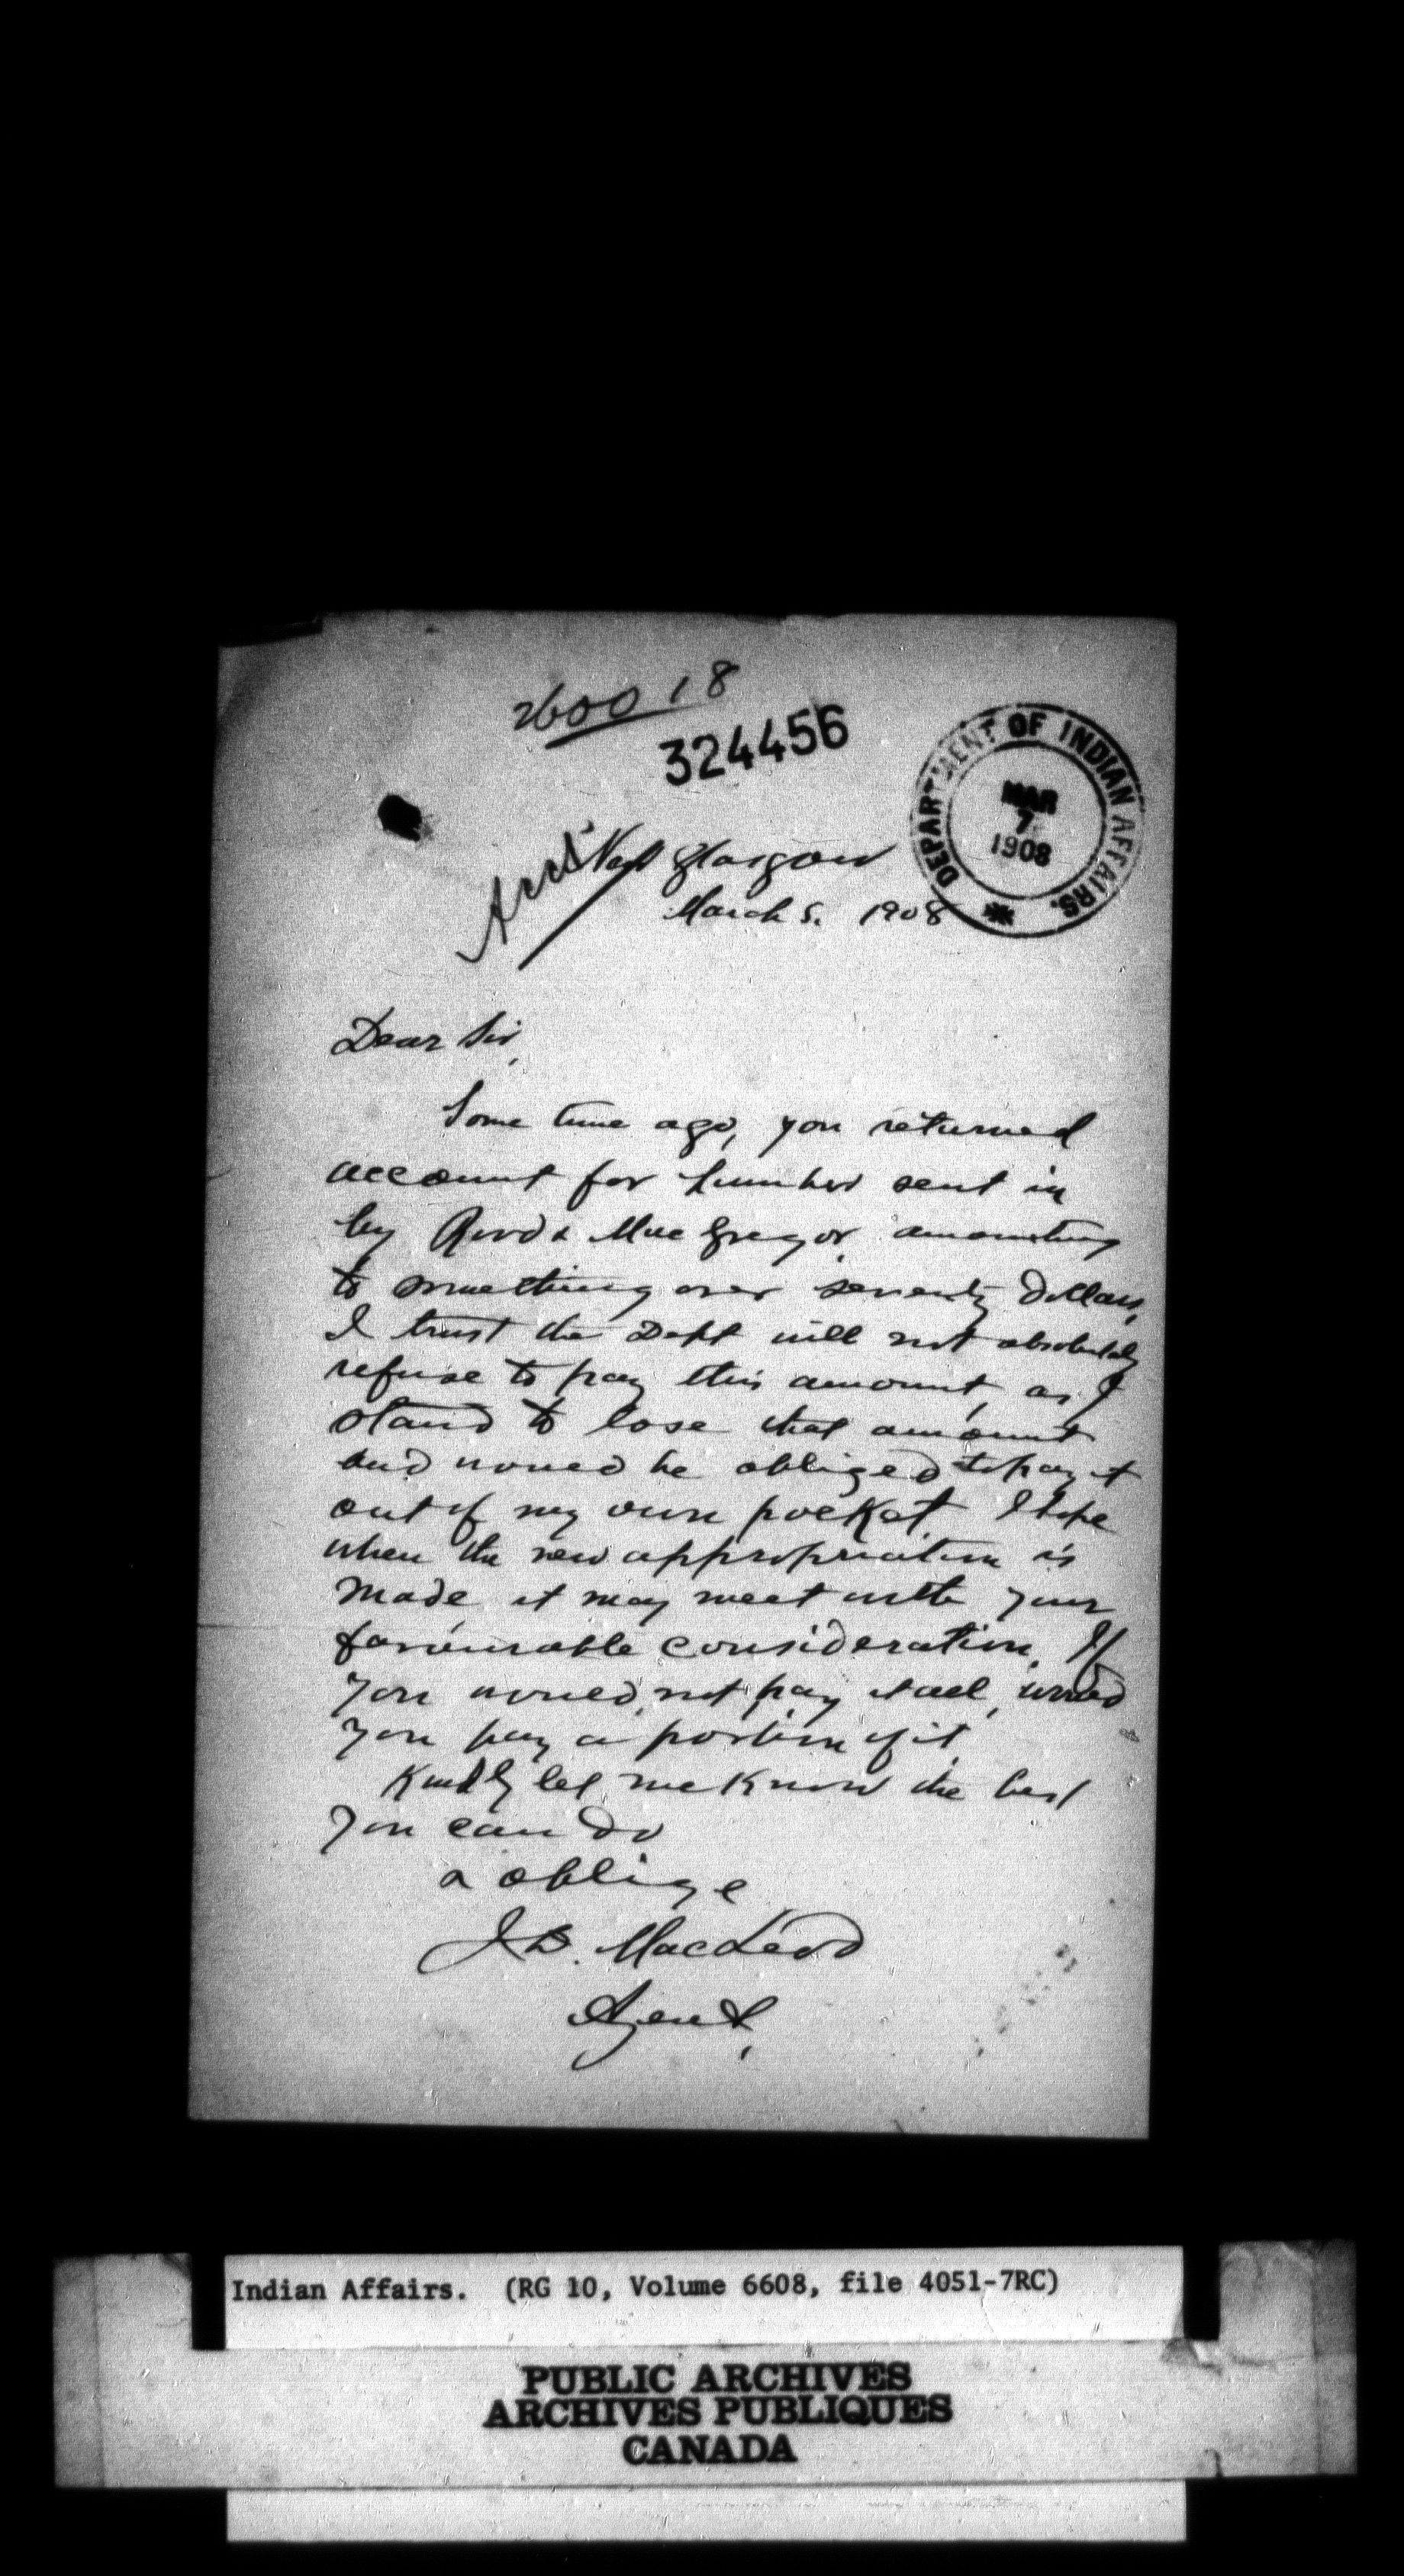 260018
324456
DEPARTMENT OF INDIAN AFFAIRS.
MAR
7
1908
New Glasgow
March 5. 1908
Dear Sir,
Some time ago, you returned
account for Lumber sent in
by MacGregor amounting
to something over seventy dollars,
I trust the Dept will not absolutely
refuse to pay this amount, as I
stand to lose that amount
and would be obliged to pay it
out of my own pocket. I hope
when the new appropriation is
made it may meet with your
favourable consideration. If
you would not pay it all, would
you pay a portion of it.
Kindly let me know the best
you can do
& oblige
J.D. MacLeod
Agent,
Indian Affairs. (RG 10, Volume 6608, file 4051-7RC)
PUBLIC ARCHIVES
ARCHIVES PUBLIQUES
CANADA